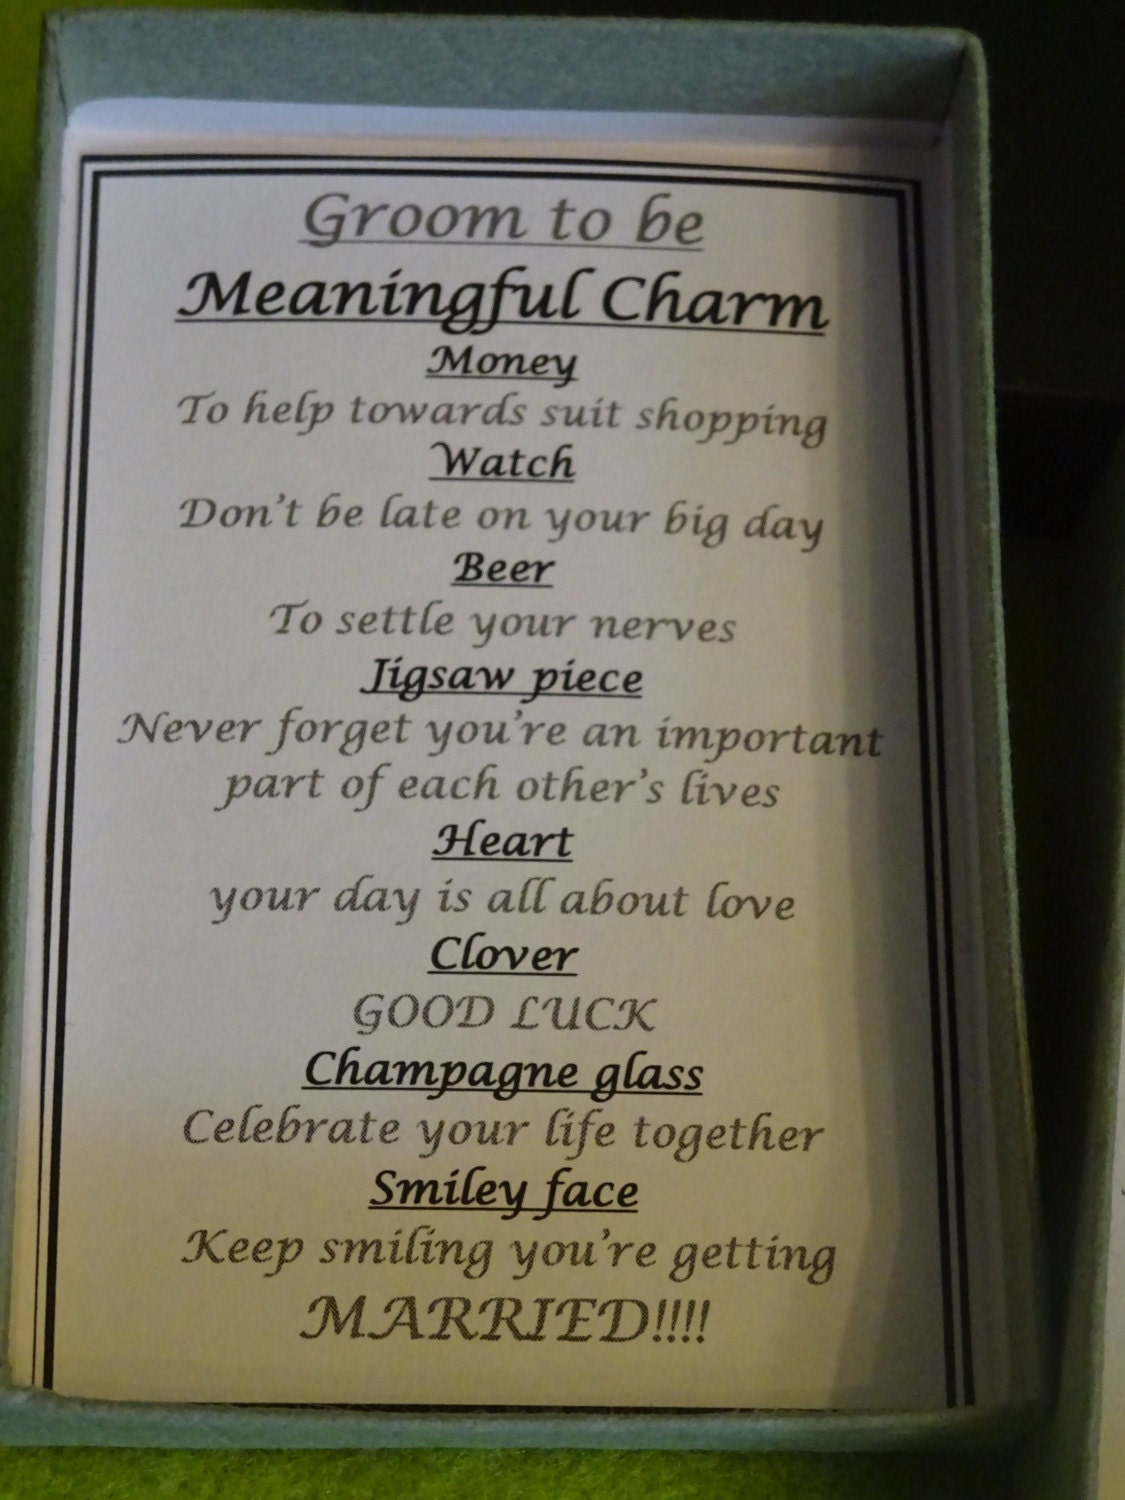 Groom to be
Meaningful Charm
Money
To help towards suit shopping
Watch
Don't be late on your big day
Beer
To settle your nerves
Jigsaw piece
Never forget you're an important
part of each other's lives
Heart
your day is all about love
Clover
GOOD LUCK
Champagne glass
Celebrate your life together
Smiley face
Keep smiling you're getting
MARRIED!!!!